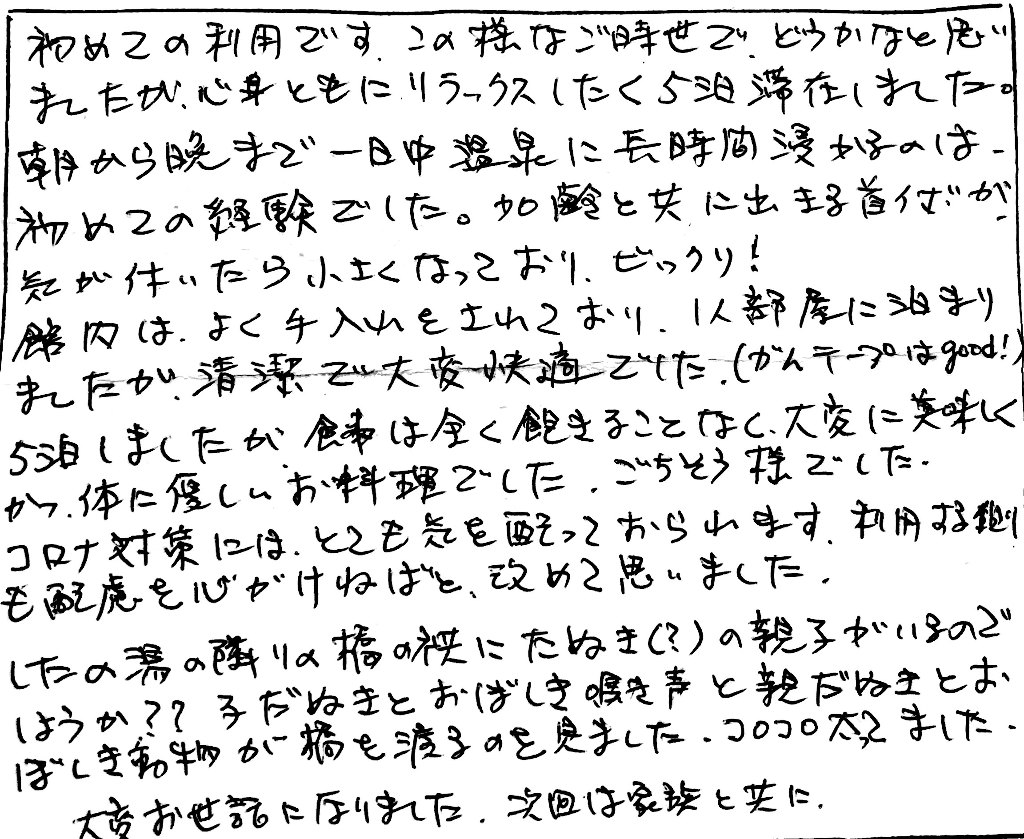 初めての利用です。この様なご時世で、どうかなと思い
ましたが、心身ともにリラックスしたく5泊滞在しました。
朝から晩まで一日中温泉に長時間浸かるのは、
初めての経験でした。加齢と共に出来る首イボが、
気が付いたら小さくなっており、ビックリ!
館内は、よく手入れをされており、1人部屋に泊まり
ましたが、清潔で大変快適でした。(がんテープはgood!)
5泊しましたが、食事は全く飽きることなく、大変に美味しく
かつ、体に優しいお料理でした。ごちそう様でした。
コロナ対策には、とても気を配っておられます。利用する側
も配慮を心がけねばと、改めて思いました。
したの湯の隣りの橋の袂にたぬき(?)の親子がいるので
しょうか?? 子だぬきとおぼしき鳴き声と親だぬきとお
ぼしき動物が橋を渡るのを見ました。コロコロ太ってました。
大変お世話になりました。次回は家族と共に。